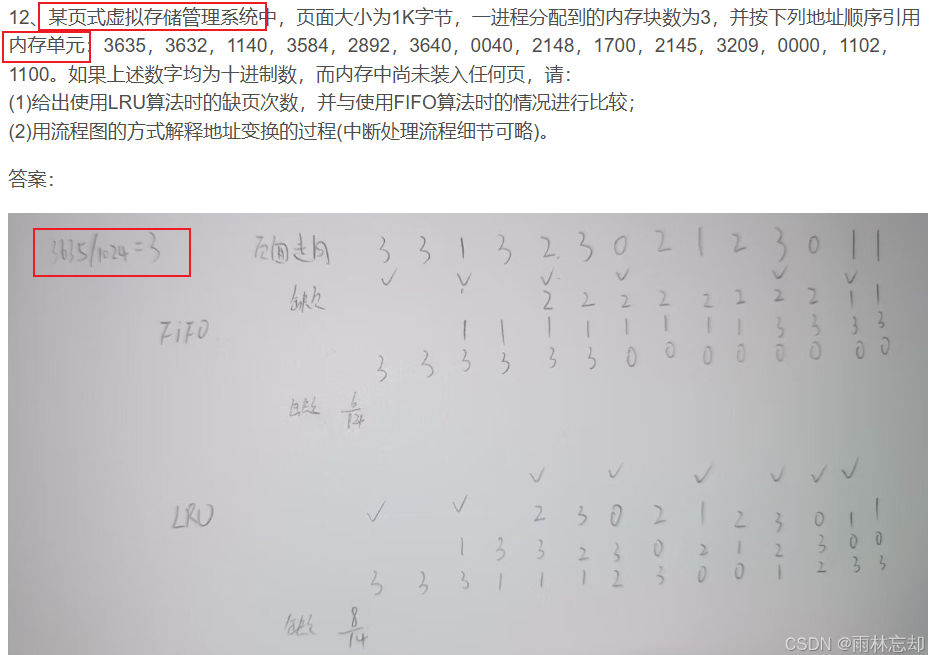 12、某页式虚拟存储管理系统中，页面大小为1K字节，一进程分配到的内存块数为3，并按下列地址顺序引用
内存单元：3635，3632，1140，3584，2892，3640，0040，2148，1700，2145，3209，0000，1102，
1100。如果上述数字均为十进制数，而内存中尚未装入任何页，请：
(1)给出使用LRU算法时的缺页次数，并与使用FIFO算法时的情况进行比较；
(2)用流程图的方式解释地址变换的过程(中断处理流程细节可略)。
答案：
3635/1024=3 页面走向 3 3 1 3 2 3 0 2 1 2 3 0 1 1
✓ ✓ ✓ ✓ ✓ ✓
缺页 2 2 2 2 2 2 2 2 1 1
FiFO 1 1 1 1 1 1 1 1 3 3 3 3
3 3 3 3 3 3 0 0 0 0 0 0 0 0
6/14
✓ ✓ ✓ ✓ ✓ ✓ ✓ ✓
LRU 2 3 0 2 1 2 3 0 1 1
1 3 3 2 3 0 2 1 2 3 0 0
3 3 3 1 1 1 2 3 0 0 1 2 3 3
8/14
CSDN @雨林忘却